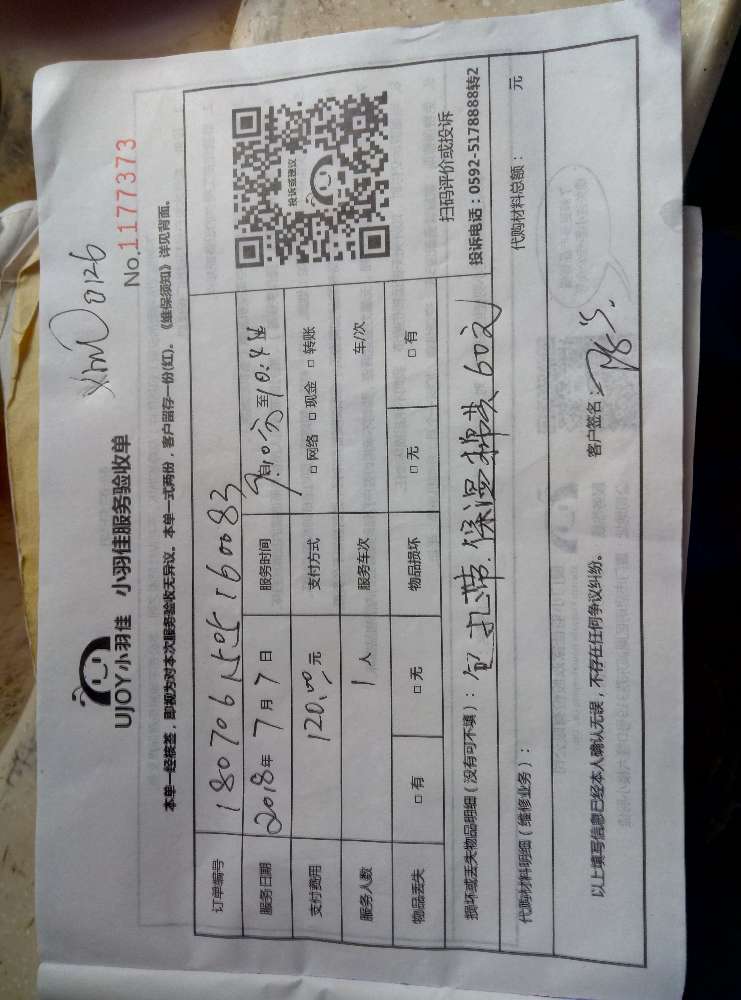 xm00126
No.1177373
UJOY小羽佳 小羽佳服务验收单
本单一经核签，即视为对本次服务验收无异议。本单一式两份，客户留存一份(红)。《维保须知》详见背面。
订单编号
服务日期 2018年 7月 7日 服务时间
支付费用 120.00元 支付方式 □ 网络 □ 现金 □ 转账
服务人数 1 人 服务车次 车/次
物品丢失 □ 有 □ 无 物品损坏 □ 无 □ 有
投诉或建议
扫码评价或投诉
投诉电话：0592-5178888转2
损坏或丢失物品明细（没有可不填）：包扎带.保温棉共60元
代购材料明细（维修业务）： 代购材料总额： 元
以上填写信息已经本人确认无误，不存在任何争议纠纷。 客户签名：